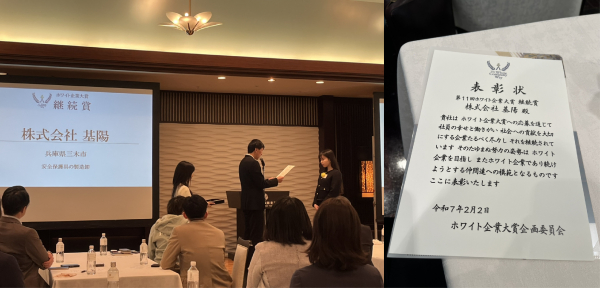 ホワイト企業大賞
継続賞
株式会社 基陽
兵庫県三木市
安全保護具の製造販
表彰状
第11回ホワイト企業大賞 継続賞
株式会社 基陽 殿
貴社は ホワイト企業大賞への応募を通じて
社員の幸せと働きがい 社会への貢献を大切
にする企業たるべく尽力し それを継続されて
います そのたゆまぬ努力の姿勢は ホワイト
企業を目指し またホワイト企業であり続け
ようとする仲間達への模範となるものです
ここに表彰いたします
令和7年2月2日
ホワイト企業大賞企画委員会